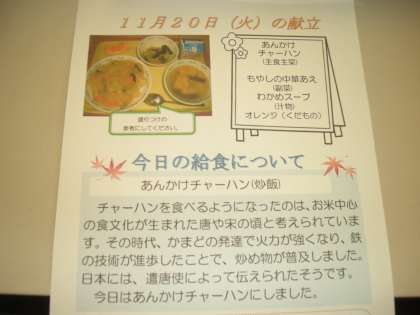 11月20日（火）の献立
あんかけ
チャーハン
（主食主菜）
もやしの中華あえ
（副菜）
わかめスープ
（汁物）
オレンジ（くだもの）
盛りつけの
参考にしてください。
今日の給食について
あんかけチャーハン(炒飯)
チャーハンを食べるようになったのは、お米中心
の食文化が生まれた唐や宋の頃と考えられていま
す。その時代、かまどの発達で火力が強くなり、鉄
の技術が進歩したことで、炒め物が普及しました。
日本には、遣唐使によって伝えられたそうです。
今日はあんかけチャーハンにしました。